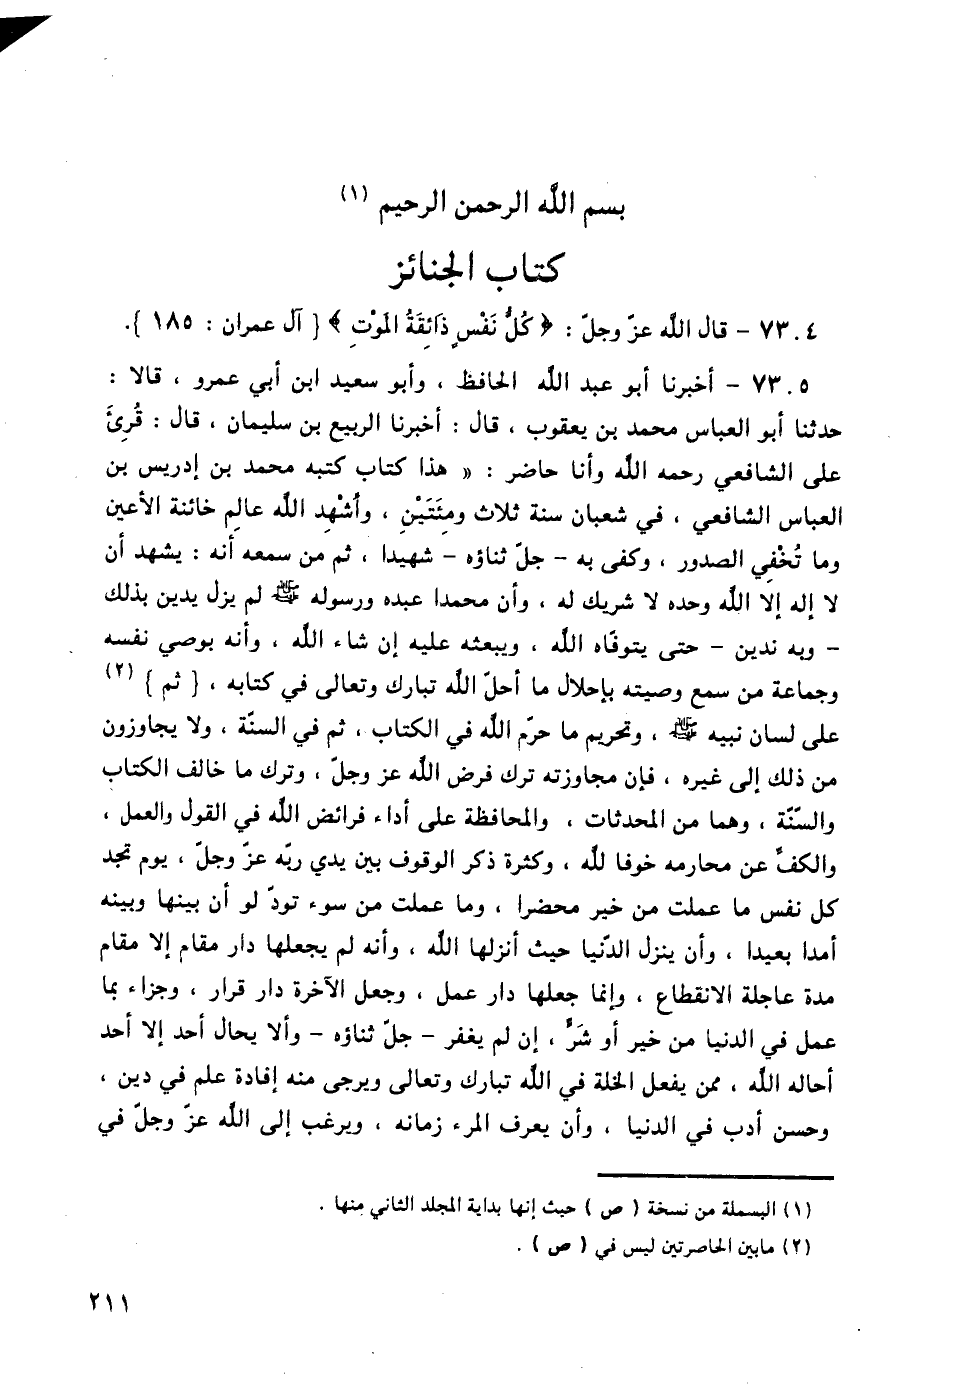 بسم الله الرحمن الرحيم (١)
كتاب الجنائز
٧٣٠٤ - قال الله عزّ وجلّ : ﴿ كُلُّ نَفْسٍ ذَائِقَةُ المَوْتِ ﴾ { آل عمران : ١٨٥ }.
٧٣٠٥ - أخبرنا أبو عبد الله الحافظ ، وأبو سعيد ابن أبي عمرو ، قالا :
حدثنا أبو العباس محمد بن يعقوب ، قال : أخبرنا الربيع بن سليمان ، قال : قُرِئَ
على الشافعي رحمه الله وأنا حاضر : « هذا كتاب كتبه محمد بن إدريس بن
العباس الشافعي ، في شعبان سنة ثلاث ومِئَتَيْنِ ، وأشْهِد الله عالِم خائنة الأعين
وما تُخْفِي الصدور ، وكفى به - جلّ ثناؤه - شهيدا ، ثم من سمعه أنه : يشهد أن
لا إله إلا الله وحده لا شريك له ، وأن محمدا عبده ورسوله ﷺ لم يزل يدين بذلك
- وبه ندين - حتى يتوفّاه الله ، ويبعثه عليه إن شاء الله ، وأنه يوصي نفسه
وجماعة من سمع وصيته بإحلال ما أحلّ الله تبارك وتعالى في كتابه ، { ثم } (٢)
على لسان نبيه ﷺ ، وتحريم ما حرّم الله في الكتاب ، ثم في السنّة ، ولا يجاوزون
من ذلك إلى غيره ، فإن مجاوزته ترك فرض الله عز وجلّ ، وترك ما خالف الكتاب
والسّنّة ، وهما من المحدثات ، والمحافظة على أداء فرائض الله في القول والعمل ،
والكفُّ عن محارمه خوفا لله ، وكثرة ذكر الوقوف بين يدي ربّه عزّ وجلّ ، يوم تجد
كل نفس ما عملت من خير محضرا ، وما عملت من سوء تودّ لو أن بينها وبينه
أمدا بعيدا ، وأن ينزل الدّنيا حيث أنزلها الله ، وأنه لم يجعلها دار مقام إلا مقام
مدة عاجلة الانقطاع ، وإنما جعلها دار عمل ، وجعل الآخرة دار قرار ، وجزاء بما
عمل في الدنيا من خير أو شَرٍّ ، إن لم يغفر - جلّ ثناؤه - وألا يحال أحد إلا أحد
أحاله الله ، ممن يفعل الخلة في الله تبارك وتعالى ويرجى منه إفادة علم في دين ،
وحسن أدب في الدنيا ، وأن يعرف المرء زمانه ، ويرغب إلى الله عزّ وجلّ في
(١) البسملة من نسخة ( ص ) حيث إنها بداية المجلد الثاني منها .
(٢) مابين الحاصرتين ليس في ( ص ) .
٢١١